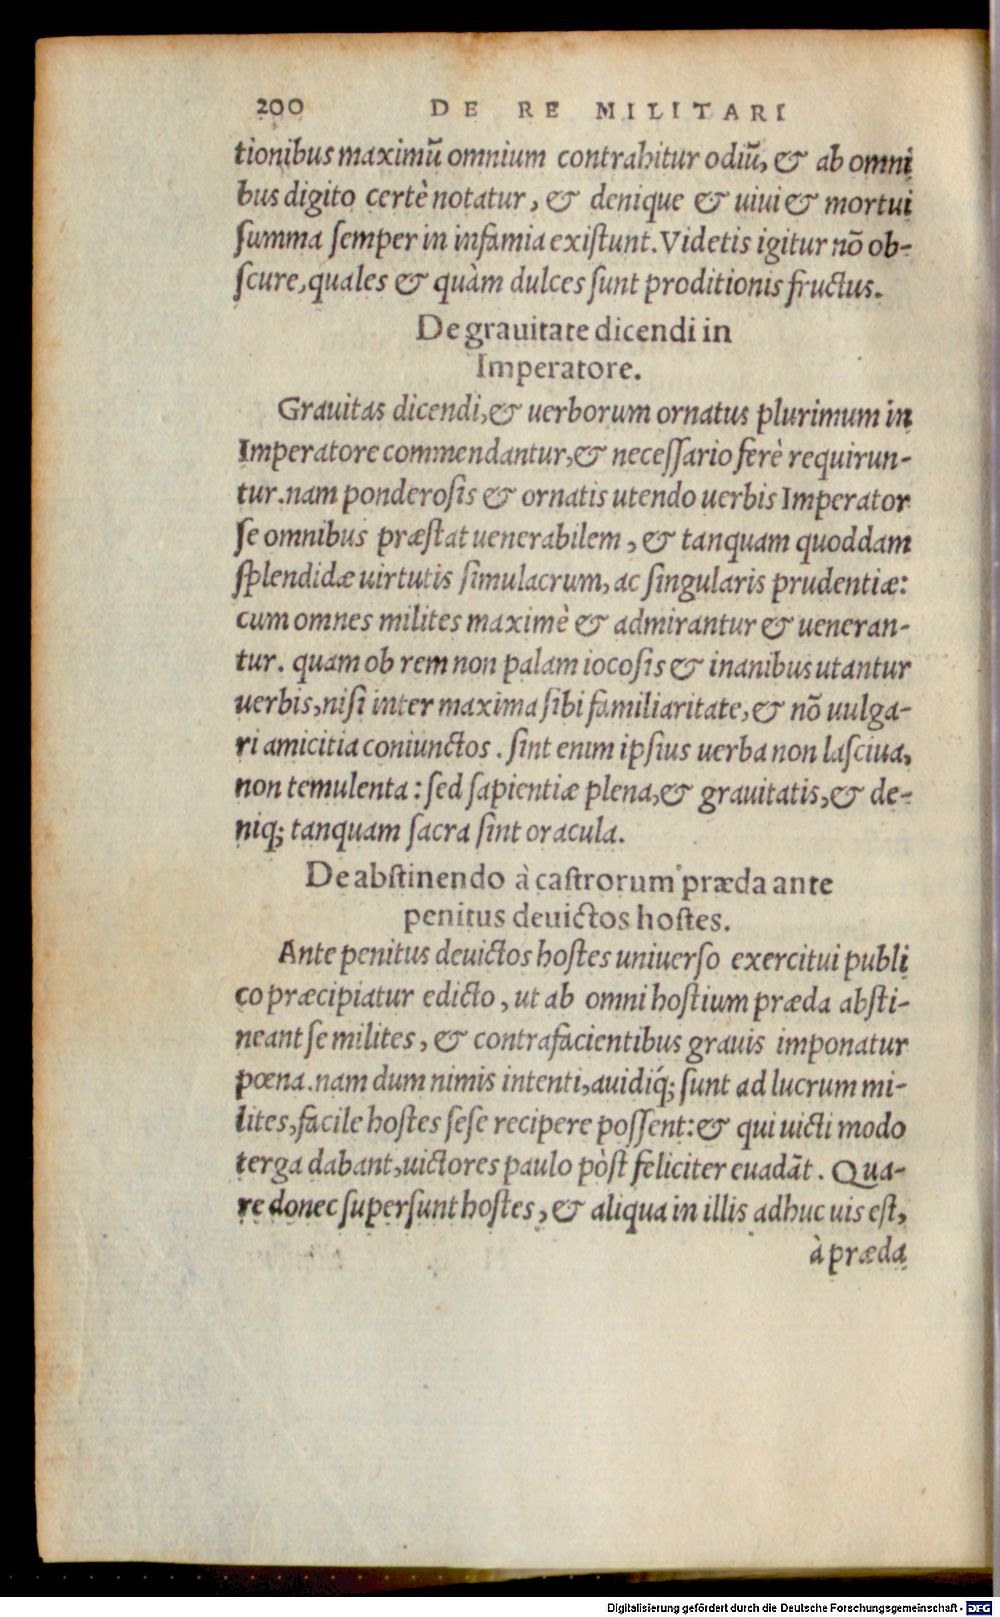 200 DE RE MILITARI
tionibus maximū omnium contrahitur odiū, & ab omni
bus digito certè notatur, & denique & uiui & mortui
ſumma ſemper in infamia exiſtunt. Videtis igitur nō ob-
ſcure, quales & quàm dulces ſunt proditionis fructus.
De grauitate dicendi in
Imperatore.
Grauitas dicendi, & uerborum ornatus plurimum in
Imperatore commendantur, & neceſſario ferè requirun-
tur. nam ponderoſis & ornatis utendo uerbis Imperator
ſe omnibus præſtat uenerabilem, & tanquam quoddam
ſplendidæ uirtutis ſimulacrum, ac ſingularis prudentiæ:
cum omnes milites maximè & admirantur & ueneran-
tur. quam ob rem non palam iocoſis & inanibus utantur
uerbis, niſi inter maxima ſibi familiaritate, & nō uulga-
ri amicitia coniunctos. ſint enim ipſius uerba non laſciua,
non temulenta: ſed ſapientiæ plena, & grauitatis, & de-
niq; tanquam ſacra ſint oracula.
De abſtinendo à caſtrorum præda ante
penitus deuictos hoſtes.
Ante penitus deuictos hoſtes uniuerſo exercitui publi
co præcipiatur edicto, ut ab omni hoſtium præda abſti-
neant ſe milites, & contrafacientibus grauis imponatur
pœna. nam dum nimis intenti, auidiq́; ſunt ad lucrum mi-
lites, facile hoſtes ſeſe recipere poſſent: & qui uicti modo
terga dabant, uictores paulo pòſt feliciter euadāt. Qua-
re donec superſunt hoſtes, & aliqua in illis adhuc uis eſt,
à præda
Digitalisierung gefördert durch die Deutsche Forschungsgemeinschaft - DFG